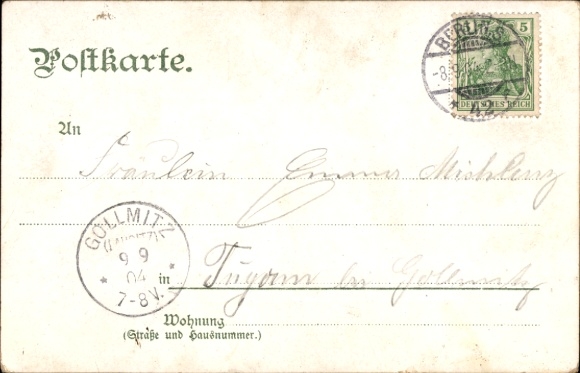 Postkarte.
BERLIN.S.
-8.9.
* 42
5
DEUTSCHES REICH
An
Fräulein Emma
GOLLMITZ
(LAUSITZ)
9 9
04
7-8V.
in bei Gollmitz
Wohnung
(Straße und Hausnummer.)